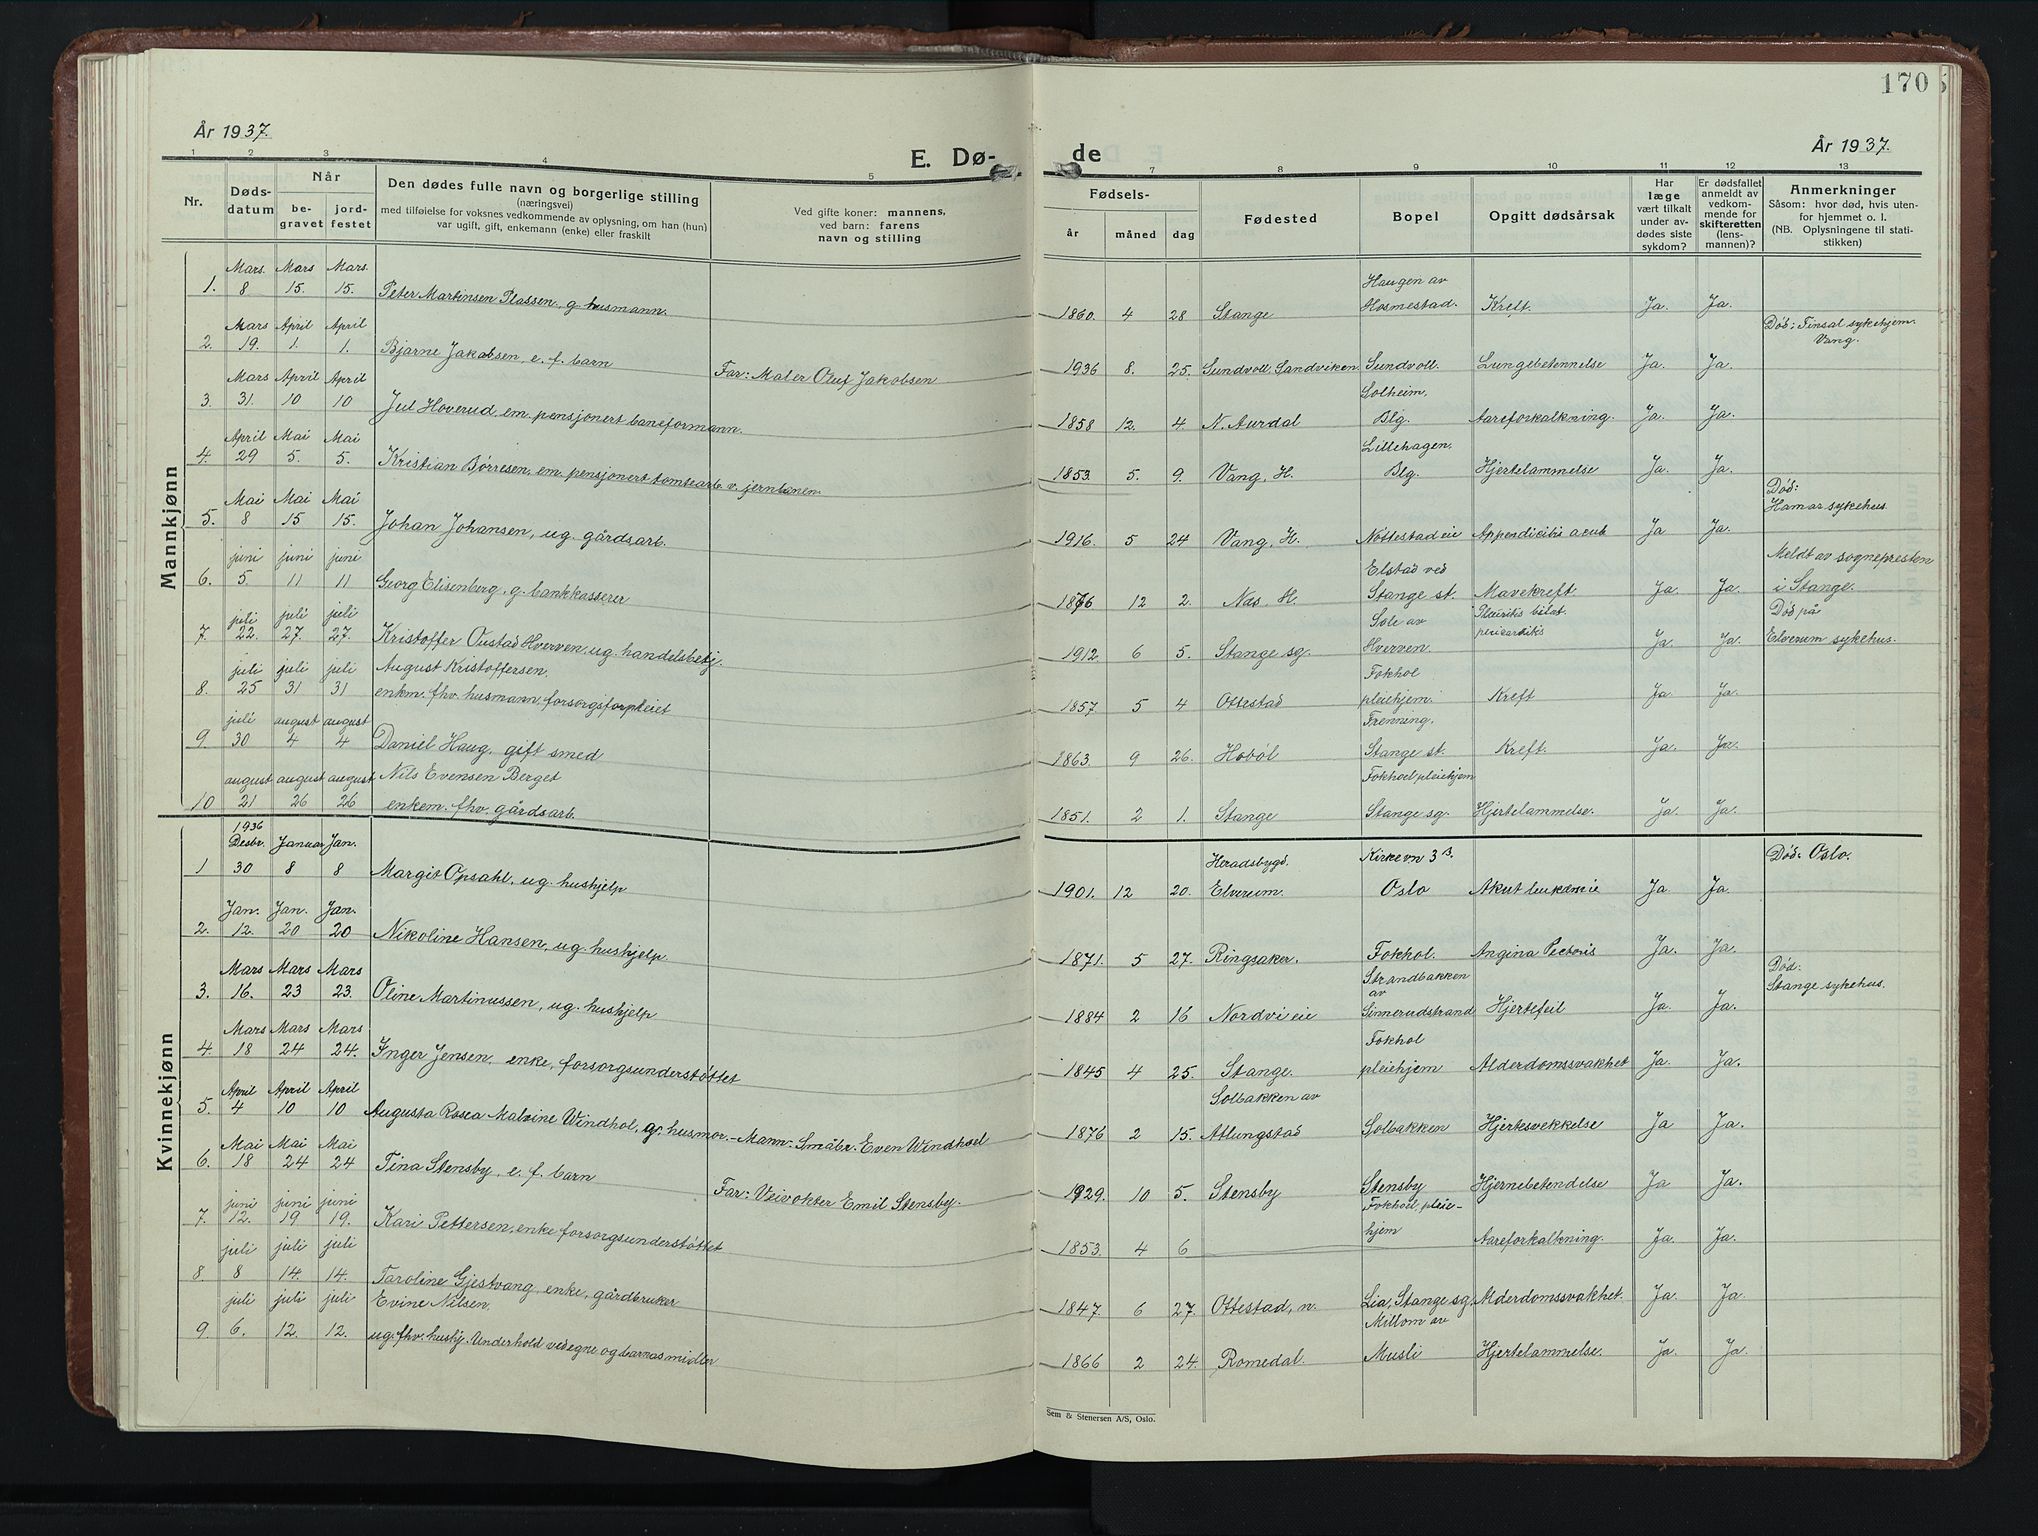 170
År 1937.
E. Dø-
de
År 1937.
1 2 3 4 5 7 8 9 10 11 12 13
Nr.
Døds-
datum
Når
be-
gravet
jord-
festet
Den dødes fulle navn og borgerlige stilling
(næringsvei)
med tilføielse for voksnes vedkommende av oplysning, om han (hun)
var ugift, gift, enkemann (enke) eller fraskilt
Ved gifte koner: mannens,
ved barn: farens
navn og stilling
Fødsels-
år
måned
dag
Fødested
Bopel
Opgitt dødsårsak
Har
læge
vært tilkalt
under av-
dødes siste
sykdom?
Er dødsfallet
anmeldt av
vedkom-
mende for
skifteretten
(lens-
mannen)?
Anmerkninger
Såsom: hvor død, hvis uten-
for hjemmet o. l.
(NB. Oplysningene til stati-
stikken)
Mannkjønn
Mars. Mars Mars. Haugen av
1. 8 15. 15. Peter Martinsen Plassen, g. husmann. 1860. 4 28 Stange Hosmestad. Kreft. Ja. Ja.
Mars April April Død: Finsal sykehjem.
Vang.
2. 19. 1. 1. Bjarne Jakobsen, e. f. barn Far: Maler Oluf Jakobsen 1936 8. 25. Sundvoll, Sandviken Sundvoll. Lungebetennelse Ja. Ja.
Mars April April Solheim,
3. 31. 10 10 Jul Hoverud, em. pensjonert baneformann. 1858 12. 4. N. Aurdal Blg. Aareforkalkning. Ja. Ja.
April Mai Mai Lillehagen.
4. 29 5. 5. Kristian Børresen, em. pensjonert tomtearb. v. jernbanen. 1853. 5. 9. Vang, H. Blg. Hjertelammelse Ja. Ja.
Mai Mai Mai Død:
Hamar sykehus.
5. 8 15 15. Johan Johansen, ug. gårdsarb. 1916. 5 24 Vang, H. Nøttestadeie Appendicitis acut Ja Ja.
juni juni juni Elstad ved Meldt av sognepresten
6. 5 11 11 Georg Elisenberg, g. bankkasserer 1876 12 2. Nes. H. Stange st. Mavekreft. Ja. Ja. i Stange.
juli juli juli Sole av Pleuritis bilat. Død på
7. 22. 27. 27. Kristoffer Oustad Hverven, ug. handelsbetj. 1912. 6 5. Stange sg. Hverven. pericarditis Ja. Ja. Elverum sykehus.
juli juli juli August Kristoffersen. Fokhol
8. 25 31 31 enkm. fhv. husmann, forsorgsforpleiet 1857 5 4 Ottestad pleiehjem. Kreft Ja. Ja.
juli august august Frenning.
9. 30 4 4 Daniel Haug, gift smed 1863 9 26. Hobøl Stange st. Kreft. Ja. Ja.
august august august Nils Evensen Berget Fokhoel pleiehjem
10 21 26 26 enkem. fhv. gårdsarb. 1851. 2 1. Stange Stange sg. Hjertelammelse. Ja. Ja.
Kvinnekjønn
1936
Desbr. Januar Jan. Heradsbygd. Kirkevn 3 B. Død: Oslo.
1 30 8 8 Margit Opsahl, ug. hushjelp 1901. 12 20. Elverum. Oslo Akut leukæmie Ja. Ja.
Jan. Jan. Jan.
2. 12. 20 20 Nikoline Hansen, ug. hushjelp 1871. 5 27. Ringsaker. Fokhol. Angina Pectoris Ja. Ja.
Mars Mars Mars Strandbakken
av Død:
Stange sykehus.
3. 16. 23 23. Oline Martinussen, ug. hushjelp 1884 2 16 Nordvieie Sinnerudstrand Hjertefeil Ja. Ja.
Mars Mars Mars Fokhol
4. 18 24 24. Inger Jensen, enke, forsorgsunderstøttet 1845 4 25. Stange. pleiehjem Alderdomssvakhet Ja. Ja.
April April April Solbakken av
5. 4 10 10 Augusta Rosea Malvine Windhol, g. husmor. - Mann: Småbr. Even Windhoel 1876 2 15. Atlungstad Solbakken Hjertesvekkelse Ja Ja.
Mai Mai Mai
6. 18 24 24 Tina Stensby, e. f. barn Far: Veivokter Emil Stensby. 1929. 10 5. Stensby Stensby Hjernebetendelse Ja Ja.
juni juni juni Fokhoel, pleie-
7. 12. 19 19. Kari Pettersen, enke forsorgsunderstøttet 1853. 4 6 hjem Aareforkalkning. Ja. Ja.
juli juli juli
8. 8 14. 14. Taroline Gjestvang, enke, gårdbruker 1847. 6 27. Ottestad, n. Lia, Stange sg. Alderdomssvakhet. Ja. Ja
juli juli juli Evine Nilsen. Millom av
9. 6. 12. 12. ug. fhv. hushj. Underhold ved egne og barnas midler 1866 2 24. Romedal. Musli Hjertelammelse. Ja. Ja.
Sem & Stenersen A/S, Oslo.